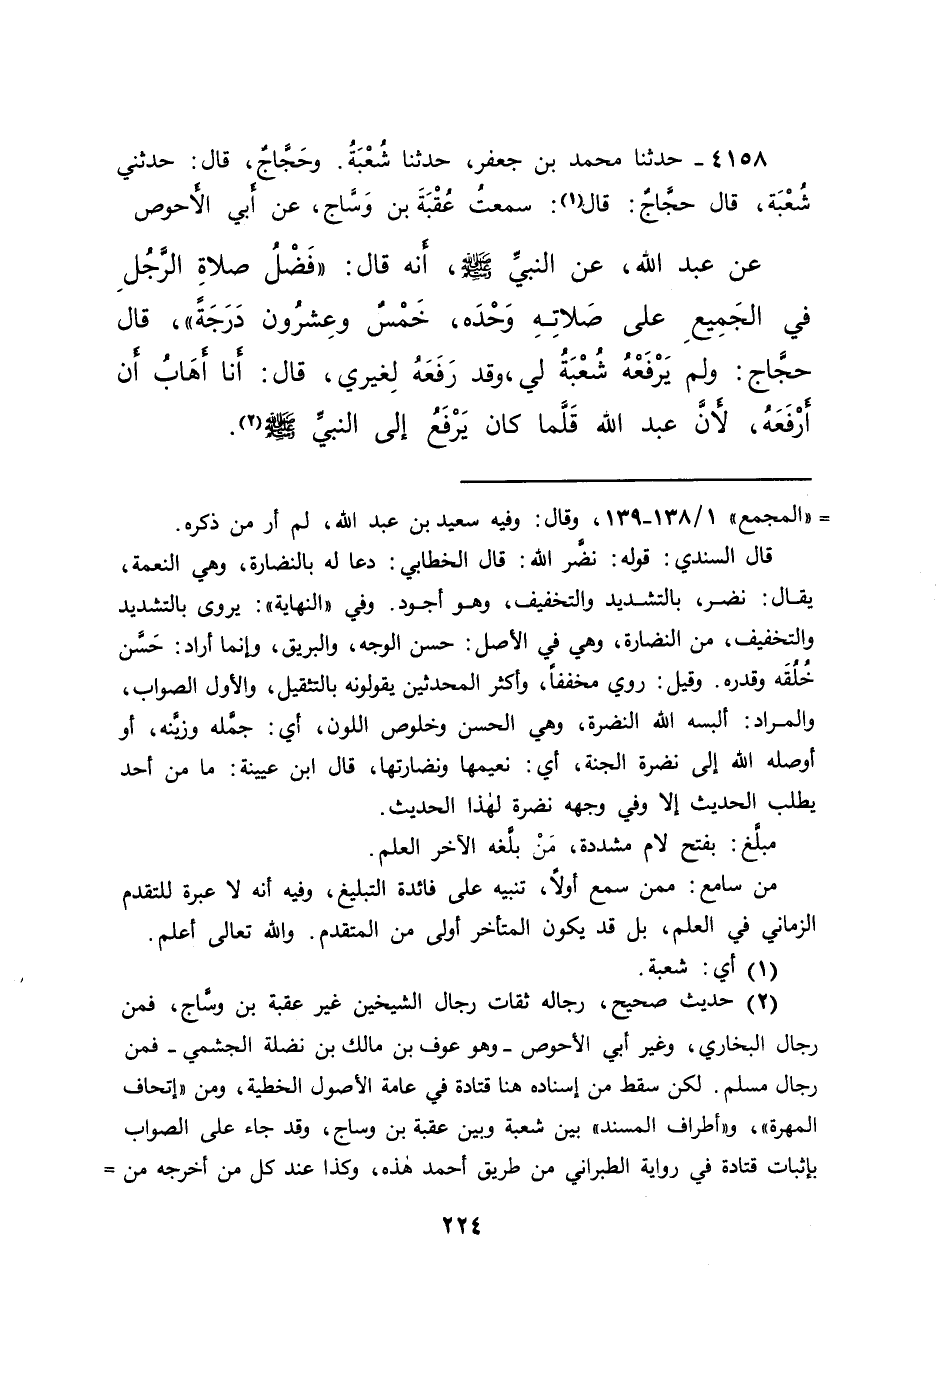 ٤١٥٨ ـ حدثنا محمد بن جعفر، حدثنا شُعْبَةُ. وحَجَّاجٌ، قال: حدثني
شُعْبَة، قال حجَّاجٌ: قال(١): سمعتُ عُقْبَةَ بن وَسَّاج، عن أَبي الأَحوص
عن عبد الله، عن النبيِّ ﷺ، أَنه قال: «فَضْلُ صلاةِ الرَّجُلِ
في الجَمِيعِ على صَلاتِهِ وَحْدَه، خَمْسٌ وعِشرُون دَرَجَةً»، قال
حجَّاج: ولم يَرْفَعْهُ شُعْبَةُ لي،وقد رَفَعَهُ لِغيري، قال: أَنا أَهَابُ أَن
أَرْفَعَهُ، لأَنَّ عبد الله قَلَّما كان يَرْفَعُ إلى النبيِّ ﷺ(٢).
= «المجمع» ١٣٨/١-١٣٩، وقال: وفيه سعيد بن عبد الله، لم أر من ذكره.
قال السندي: قوله: نضَّر الله: قال الخطابي: دعا له بالنضارة، وهي النعمة،
يقال: نضر، بالتشديد والتخفيف، وهو أجود. وفي «النهاية»: يروى بالتشديد
والتخفيف، من النضارة، وهي في الأصل: حسن الوجه، والبريق، وإنما أراد: حَسَّن
خُلُقَه وقدره. وقيل: روي مخففاً، وأكثر المحدثين يقولونه بالتثقيل، والأول الصواب،
والمراد: ألبسه الله النضرة، وهي الحسن وخلوص اللون، أي: جمَّله وزيَّنه، أو
أوصله الله إلى نضرة الجنة، أي: نعيمها ونضارتها، قال ابن عيينة: ما من أحد
يطلب الحديث إلا وفي وجهه نضرة لهٰذا الحديث.
مبلَّغ: بفتح لام مشددة، مَنْ بلَّغه الآخر العلم.
من سامع: ممن سمع أولاً، تنبيه على فائدة التبليغ، وفيه أنه لا عبرة للتقدم
الزماني في العلم، بل قد يكون المتأخر أولى من المتقدم. والله تعالى أعلم.
(١) أي: شعبة.
(٢) حديث صحيح، رجاله ثقات رجال الشيخين غير عقبة بن وسَّاج، فمن
رجال البخاري، وغير أبي الأحوص ـ وهو عوف بن مالك بن نضلة الجشمي ـ فمن
رجال مسلم. لكن سقط من إسناده هنا قتادة في عامة الأصول الخطية، ومن «إتحاف
المهرة»، و«أطراف المسند» بين شعبة وبين عقبة بن وساج، وقد جاء على الصواب
بإثبات قتادة في رواية الطبراني من طريق أحمد هٰذه، وكذا عند كل من أخرجه من =
٢٢٤